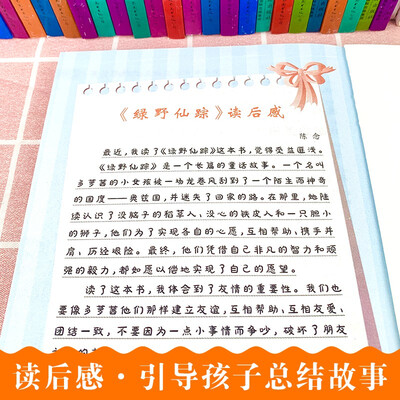 《绿野仙踪》读后感
陈念
最近，我读了《绿野仙踪》这本书，觉得受益匪浅。
《绿野仙踪》是一个长篇的童话故事。一个名叫
多萝茜的小女孩被一场龙卷风刮到了一个陌生而神奇
的国度——奥兹国，并迷失了回家的路。在那里，她陆
续认识了没脑子的稻草人、没心的铁皮人和一只胆小
的狮子，他们为了实现各自的心愿，互相帮助，携手并
肩、历经艰险。最终，他们凭借自己非凡的智力和顽
强的毅力，都如愿以偿地实现了自己的愿望。
读了这本书，我体会到了友情的重要性。我们也
要像多萝茜他们那样建立友谊，互相帮助、互相友爱、
团结一致，不要因为一点小事情而争吵，破坏了朋友
读后感·引导孩子总结故事